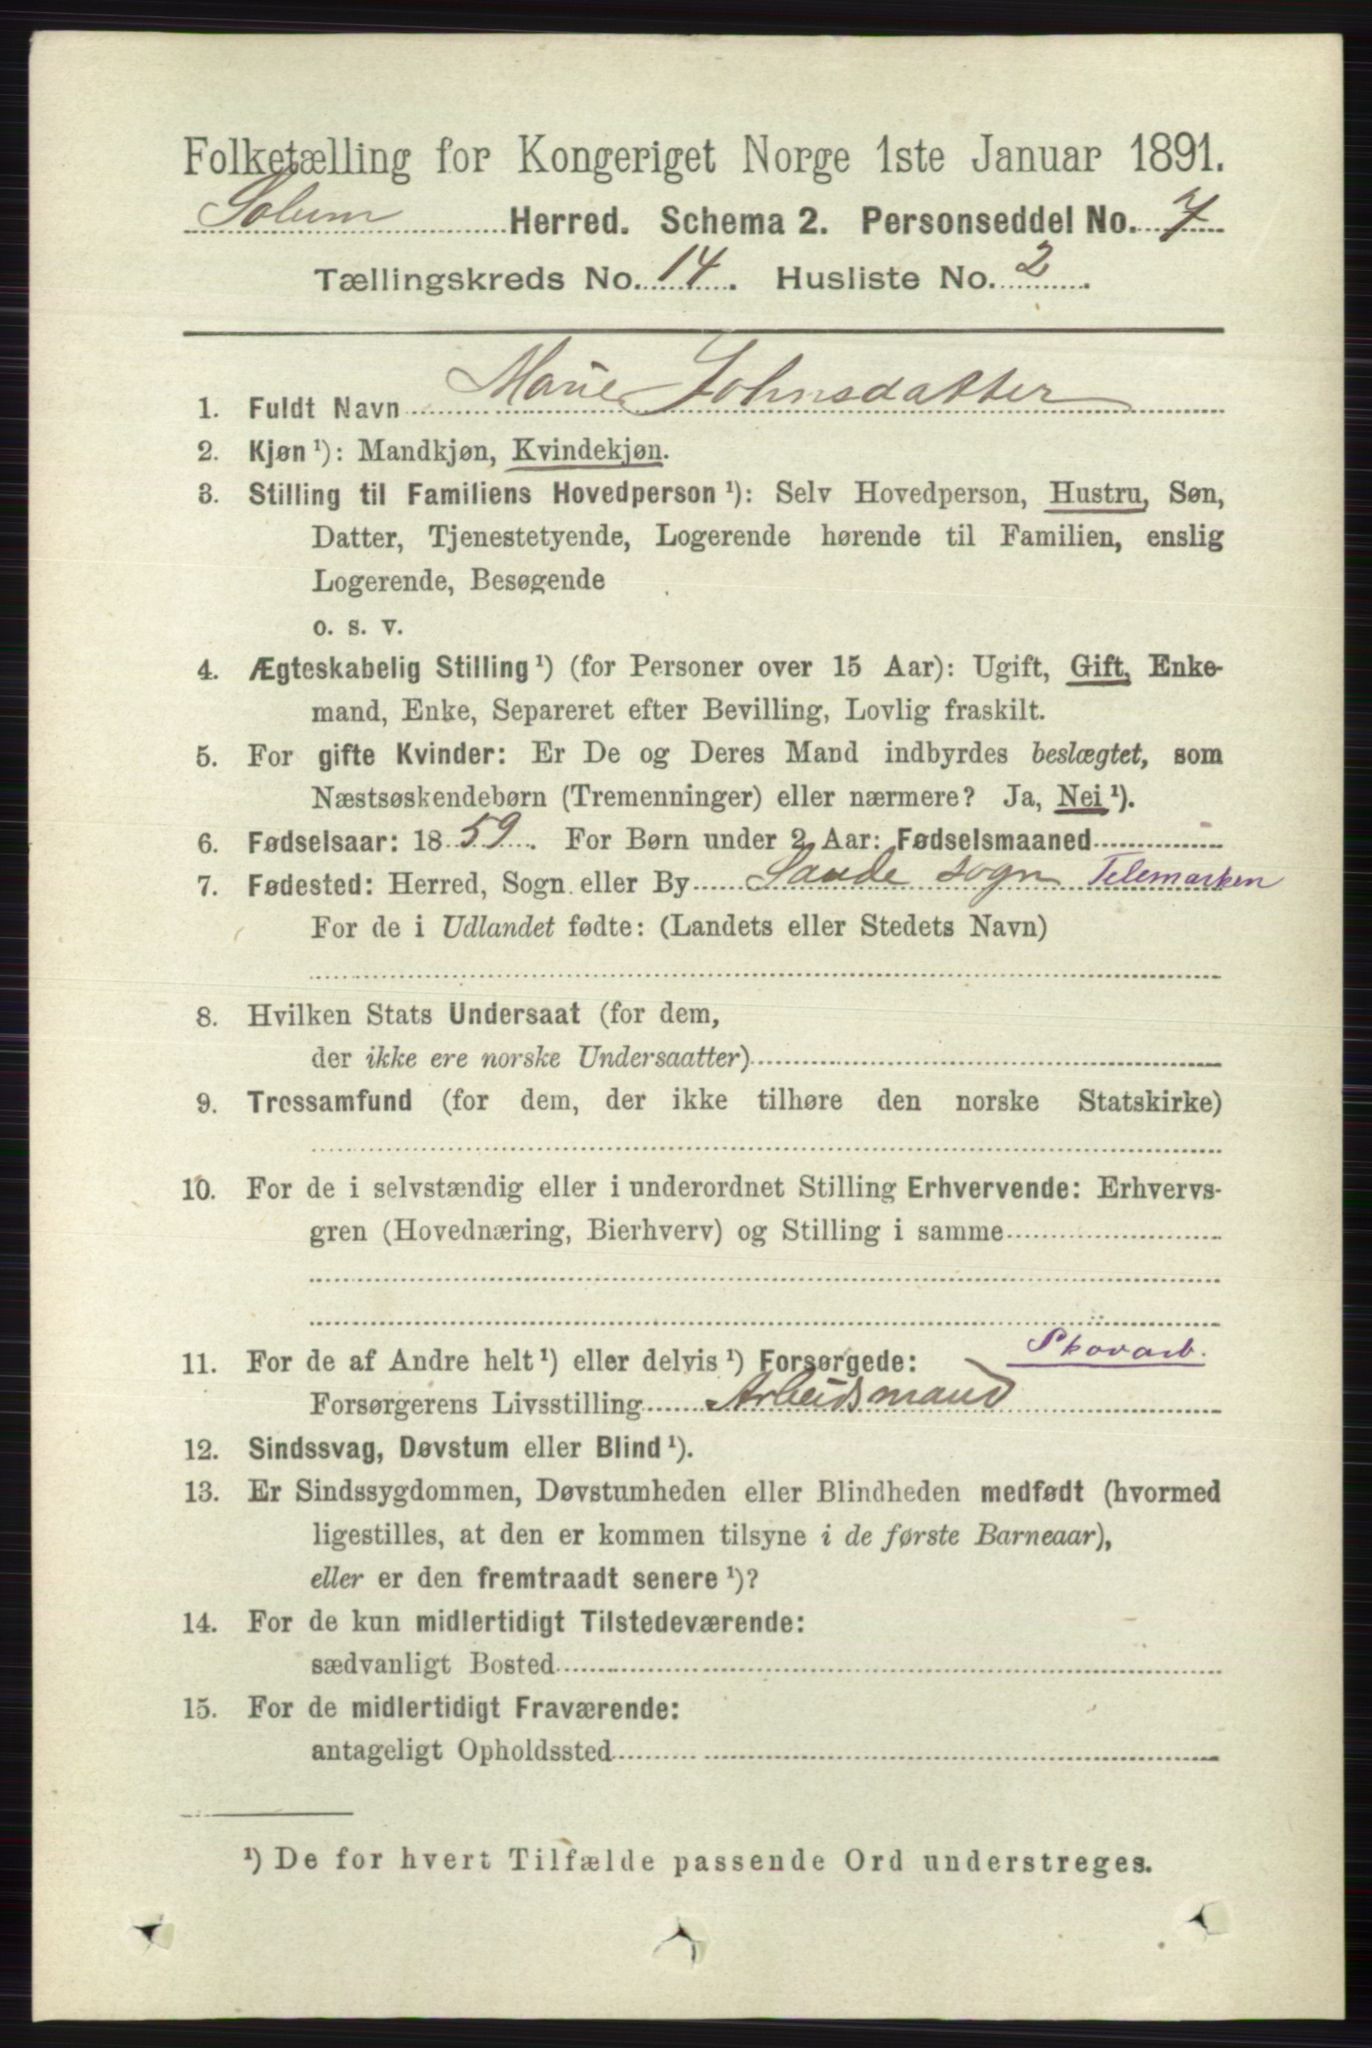 Folketælling for Kongeriget Norge 1ste Januar 1891.
Solum Herred. Schema 2. Personseddel No. 7
Tællingskreds No. 14. Husliste No. 2.
1. Fuldt Navn Marie Johnsdatter
2. Kjøn ¹): Mandkjøn, Kvindekjøn.
3. Stilling til Familiens Hovedperson ¹): Selv Hovedperson, Hustru, Søn,
Datter, Tjenestetyende, Logerende hørende til Familien, enslig
Logerende, Besøgende
o. s. v.
4. Ægteskabelig Stilling ¹) (for Personer over 15 Aar): Ugift, Gift, Enke-
mand, Enke, Separeret efter Bevilling, Lovlig fraskilt.
5. For gifte Kvinder: Er De og Deres Mand indbyrdes beslægtet, som
Næstsøskendebørn (Tremenninger) eller nærmere? Ja, Nei ¹).
6. Fødselsaar: 1859. For Børn under 2 Aar: Fødselsmaaned
7. Fødested: Herred, Sogn eller By Saude sogn Telemarken
For de i Udlandet fødte: (Landets eller Stedets Navn)
8. Hvilken Stats Undersaat (for dem,
der ikke ere norske Undersaatter)
9. Trossamfund (for dem, der ikke tilhøre den norske Statskirke)
10. For de i selvstændig eller i underordnet Stilling Erhvervende: Erhvervs-
gren (Hovednæring, Bierhverv) og Stilling i samme
Skovarb.
11. For de af Andre helt ¹) eller delvis ¹) Forsørgede:
Forsørgerens Livsstilling Arbeidsmand
12. Sindssvag, Døvstum eller Blind ¹).
13. Er Sindssygdommen, Døvstumheden eller Blindheden medfødt (hvormed
ligestilles, at den er kommen tilsyne i de første Barneaar),
eller er den fremtraadt senere ¹)?
14. For de kun midlertidigt Tilstedeværende:
sædvanligt Bosted
15. For de midlertidigt Fraværende:
antageligt Opholdssted
¹) De for hvert Tilfælde passende Ord understreges.